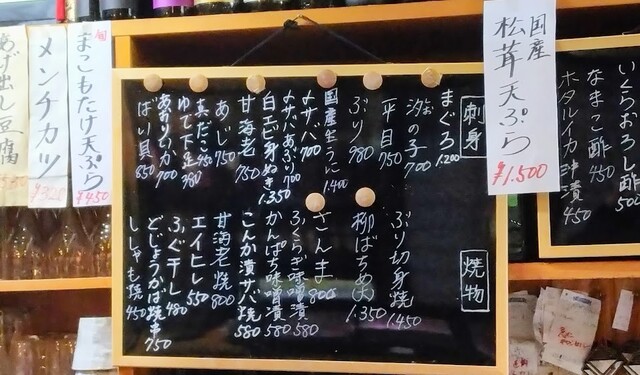 いくらおろし酢 500
なまこ酢 450
ホタルイカ沖漬 450
国産
松茸天ぷら
¥1.500
刺身
まぐろ 1.200
汐の子 700
平目 750
ぶり 980
国産生うに 1.400
〆サバ 700
〆サバあぶり 700
白エビ身ぬき 1.350
甘海老 750
あじ 750
真だこ 950
ゆで下足 380
あおりいか 700
ばい貝 850
焼物
ぶり切身焼 1.450
柳ばちめ(大) 1.350
さんま 800
ふくらぎ味噌漬 580
かんぱち味噌漬 580
こんか漬サバ焼 580
甘海老焼 800
エイヒレ 550
ふぐ干し 480
どじょうかば焼串 750
ししゃも焼 450
旬
まこもたけ天ぷら
¥450
メンチカツ
¥320
あげ出し豆腐